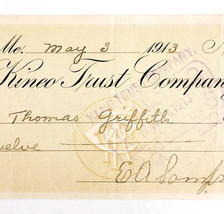 Me. May 3 1913
Kineo Trust Company
Thomas Griffith
E A Samp